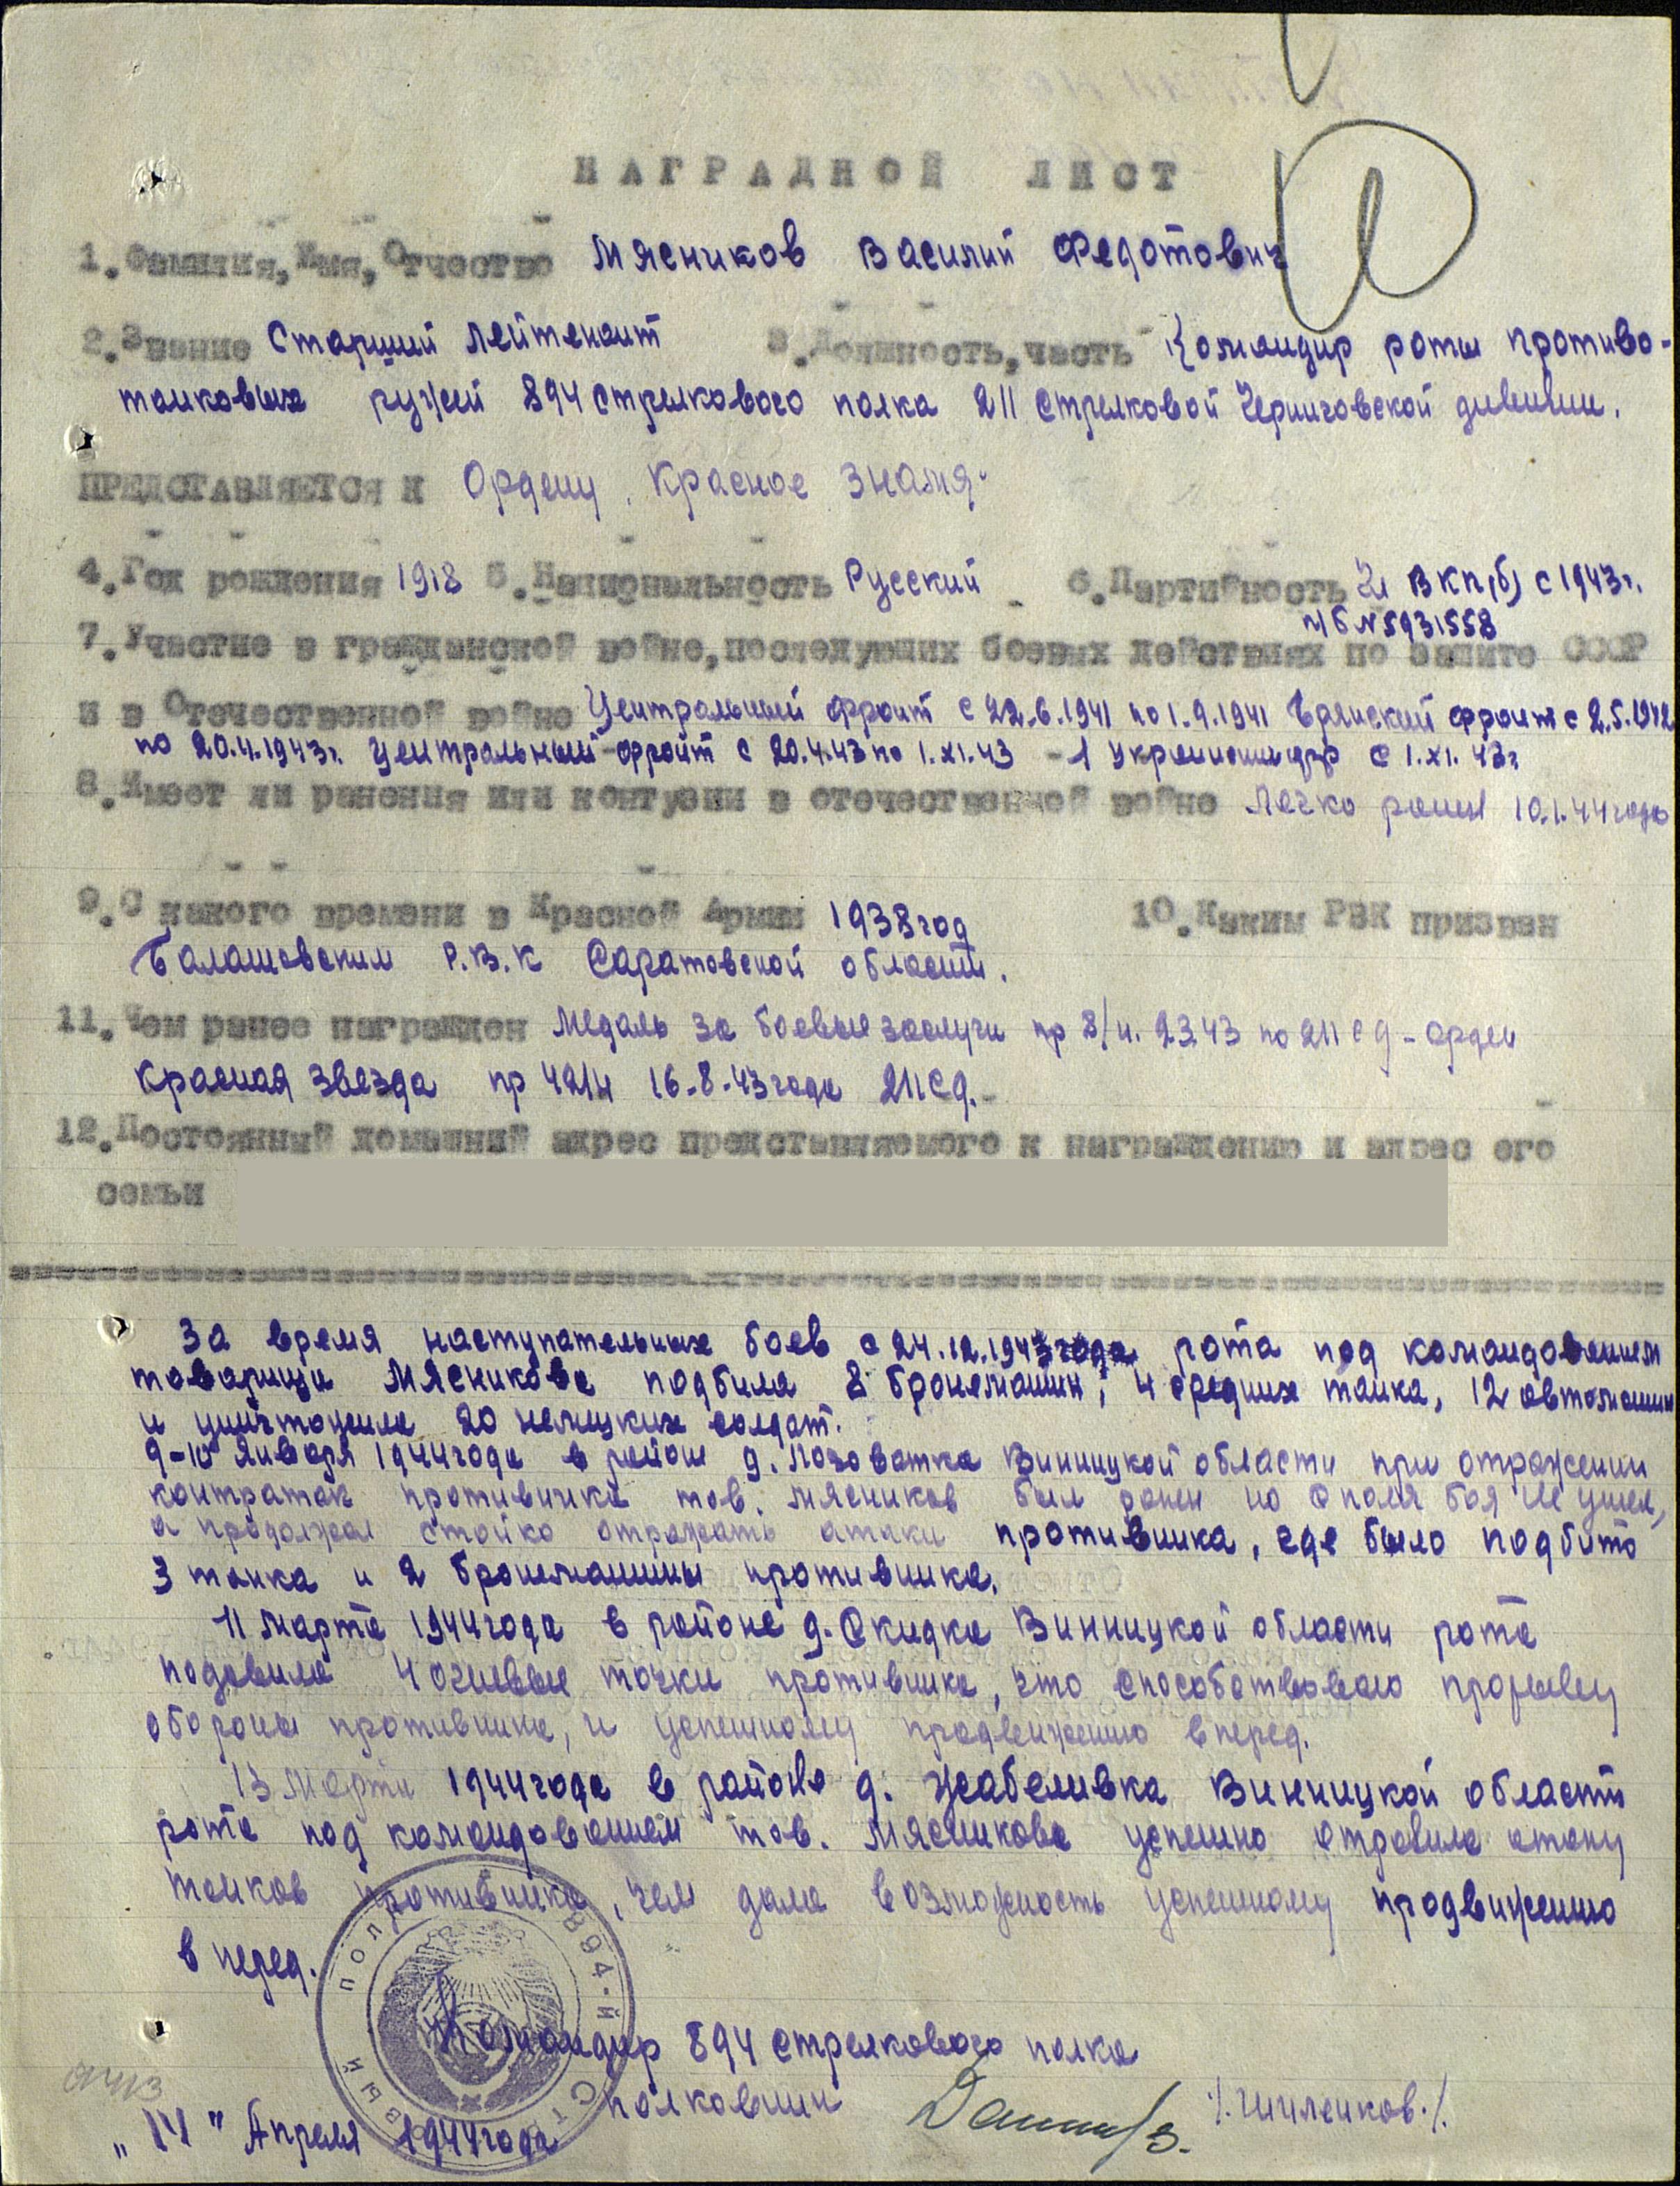 НАГРАДНОЙ ЛИСТ
1. Фамилия, Имя, Отчество Мясников Василий Федотович
2. Звание Старший лейтенант 3. Должность, часть Командир роты противо-
танковых ружей 894 стрелкового полка 211 стрелковой Черниговской дивизии.
ПРЕДСТАВЛЯЕТСЯ К Ордену Красное Знамя.
4. Год рождения 1918 5. Национальность Русский 6. Партийность Чл ВКП(б) с 1943г.
п/б №5931558
7. Участие в гражданской войне, последующих боевых действиях по защите СССР
и в Отечественной войне Центральный фронт с 22.6.1941 по 1.9.1941 Брянский фронт с 2.5.1942
по 20.4.1943г. Центральный фронт с 20.4.43 по 1.XI.43 - 1 Украинский фр с 1.XI.43г
8. Имеет ли ранения или контузии в отечественной войне Легко ранен 10.1.44 года
9. С какого времени в Красной Армии 1938 год 10. Каким РВК призван
Балашовским Р.В.К Саратовской области.
11. Чем ранее награжден Медаль За боевые заслуги пр 8/н. 2.3.43 по 211 сд - орден
Красная Звезда пр 42/н 16-8-43 года 211 сд.-
12. Постоянный домашний адрес представляемого к награждению и адрес его
семьи
За время наступательных боев с 24.12.1943 года рота под командованием
товарища Мясникова подбила 8 бронемашин, 4 средних танка, 12 автомашин
и уничтожила 20 немецких солдат.
9-10 января 1944 года в районе д. Лозоватка Винницкой области при отражении
контратак противника тов. Мясников был ранен но с поля боя не ушел,
а продолжал стойко отражать атаки противника, где было подбито
3 танка и 2 бронемашины противника.
11 марта 1944 года в районе д. Скидка Винницкой области рота
подавила 4 огневые точки противника, что способствовало прорыву
обороны противника, и успешному продвижению вперед.
13 марта 1944 года в районе д. Жабеливка Винницкой области
рота под командованием тов. Мясникова успешно отразила атаку
танков противника, чем дала возможность успешному продвижению
в перед.
Командир 894 стрелкового полка
полковник
"14" Апреля 1944 года
894-й